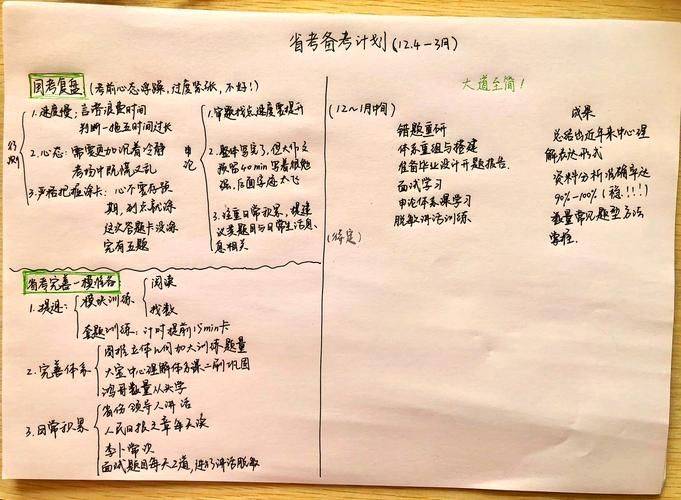 省考备考计划(12.4-3月)
国考复盘 (考前心态浮躁,过度紧张,不好!)
行测
1.速度慢;言语浪费时间
判断一拖五时间过长
2.心态:需要更加沉着冷静
考场中既慌又乱
3.严格把握涂卡:心不要存预
期,到点就涂
这次答题卡没涂
完有五题
申论
1.审题找点速度要提升
2.整体写完了,但大作文
预留40min写着很勉
强,后面字迹太飞
3.注重日常积累,
议类题目与日常生活息
息相关
省考完善-模块名
1.提速:
模块训练
阅读
找数
套题训练:计时提前15min卡
2.完善体系
图推立体几何加大训练题量
大宝中心理解体系课二刷巩固
鸿哥数量从头学
3.日常积累
省份领导人讲话
人民日报文章每天读
李卜常识
面试题目每天2道,进行讲话脱敏
大道至简!
(12~1月中间)
错题重研
体系重组与搭建
准备毕业设计开题报告.
面试学习
申论体系课学习
脱敏讲话训练
(待定)
成果
总结出近年来中心理
解表达形式
资料分析准确率达
90%-100%(稳!!!)
数量常见题型方法
掌握.